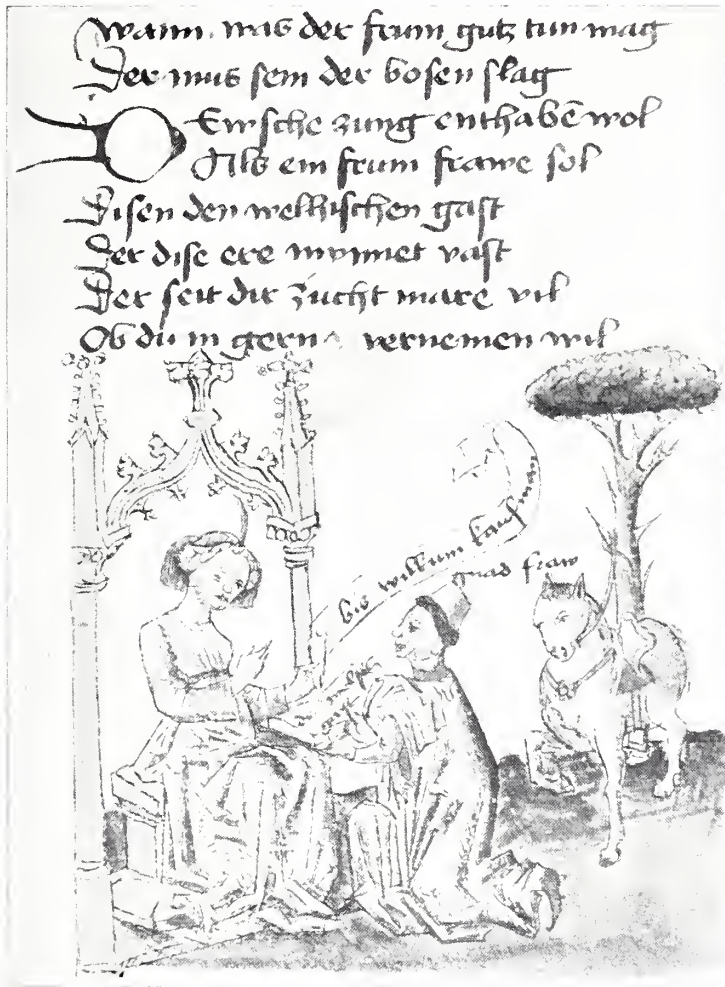 wann was der frum gutz tun mag
Der mus sein der bosen slag
Dewsche zung enthabe wol
Als ein frum frawe sol
Disen den welhischen gast
Der dise ere mynnet vast
Der seit dir zucht mare vil
Ob du in gern vernemen wil
bis willkum kaufman
gnad fraw